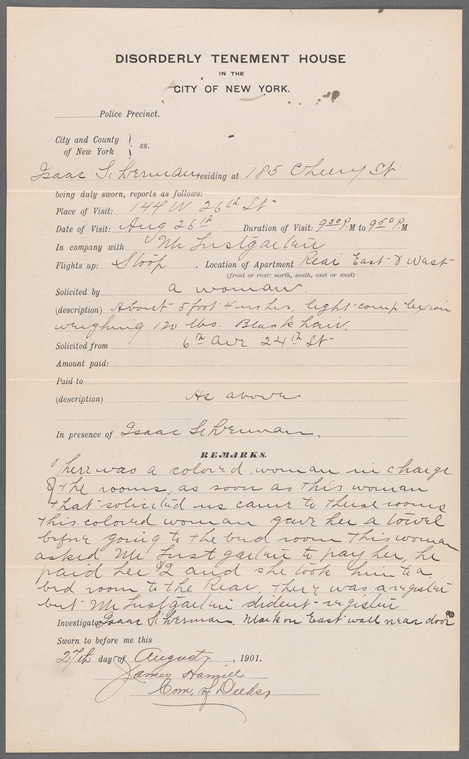 DISORDERLY TENEMENT HOUSE
IN THE
CITY OF NEW YORK.
Police Precinct.
City and County
of New York } ss.
Isaac Silverman residing at 185 Cherry St
being duly sworn, reports as follows:
Place of Visit: 144 W 26th St
Date of Visit: Aug 26th Duration of Visit: 9 30 P. M to 9 50 P. M
In company with Mr Lustgarten
Flights up: Stoop. Location of Apartment Rear East & West
(front or rear: north, south, east or west)
Solicited by a woman
(description) About 5 foot 4 inches, light complexion
weighing 120 lbs. Black hair.
Solicited from 6th Ave 24th St
Amount paid:
Paid to
(description) As above
In presence of Isaac Silverman.
REMARKS.
There was a colored woman in charge
of the rooms, as soon as this woman
that solicited us came to these rooms
this colored woman gave her a towel
before going to the bed room this woman
asked Mr Lustgarten to pay her, he
paid her $2 and she took him to a
bed room to the Rear. There was a register
but Mr Lustgarten dident register
Investigator Isaac Silverman. Mark on East wall near door
Sworn to before me this
27th day of August, 1901.
James Hamill
Com. of Deeds